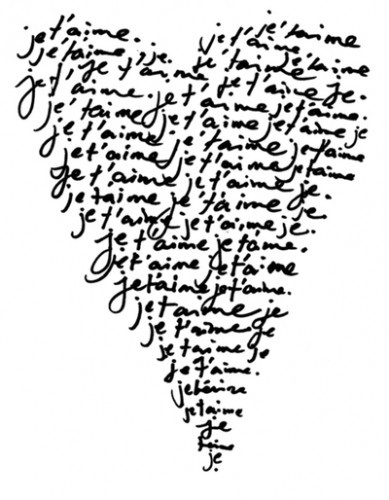 je t'aime. je t'aime
je t'aime, je. je t'aime je t'aime
je t'je t'aime je t'aime je.
je t'aime. je t'aime je t'aime.
je t'aime je t'aime je t'aime je
je t'aime je t'aime je t'aime
je t'aime je t'aime je t'aime
je t'aime je t'aime je.
je taime je t'aime je.
je t'aime je t'aime je.
je t'aime je t'aime.
je t'aime je t'aime
je taime je t'aime.
je t'aime je
je t'aime je
je taime je
je t'aime.
je taime
je
taime
je